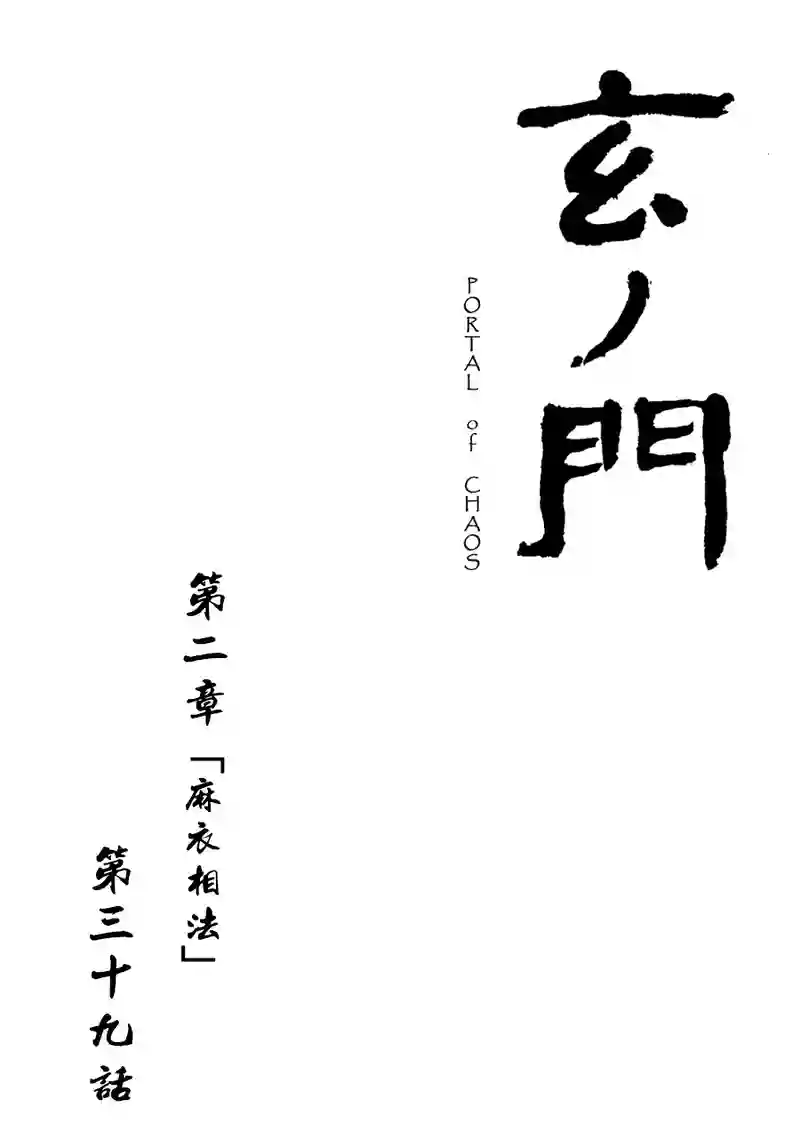 玄ノ門
PORTAL of CHAOS
第二章「麻衣相法」
第三十九話